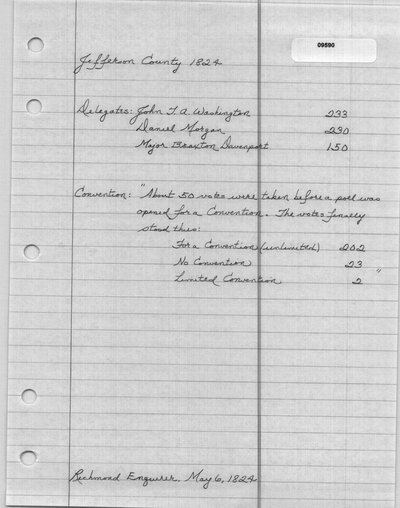 09590
Jefferson County 1824
Delegates: John T. A. Washington 233
Daniel Morgan 230
Major Braxton Davenport 150
Convention: "About 50 votes were taken before a poll was
opened for a Convention. The votes finally
stood thus:
For a Convention (unlimited) 202
No Convention 23
Limited Convention 2 "
Richmond Enquirer, May 6, 1824